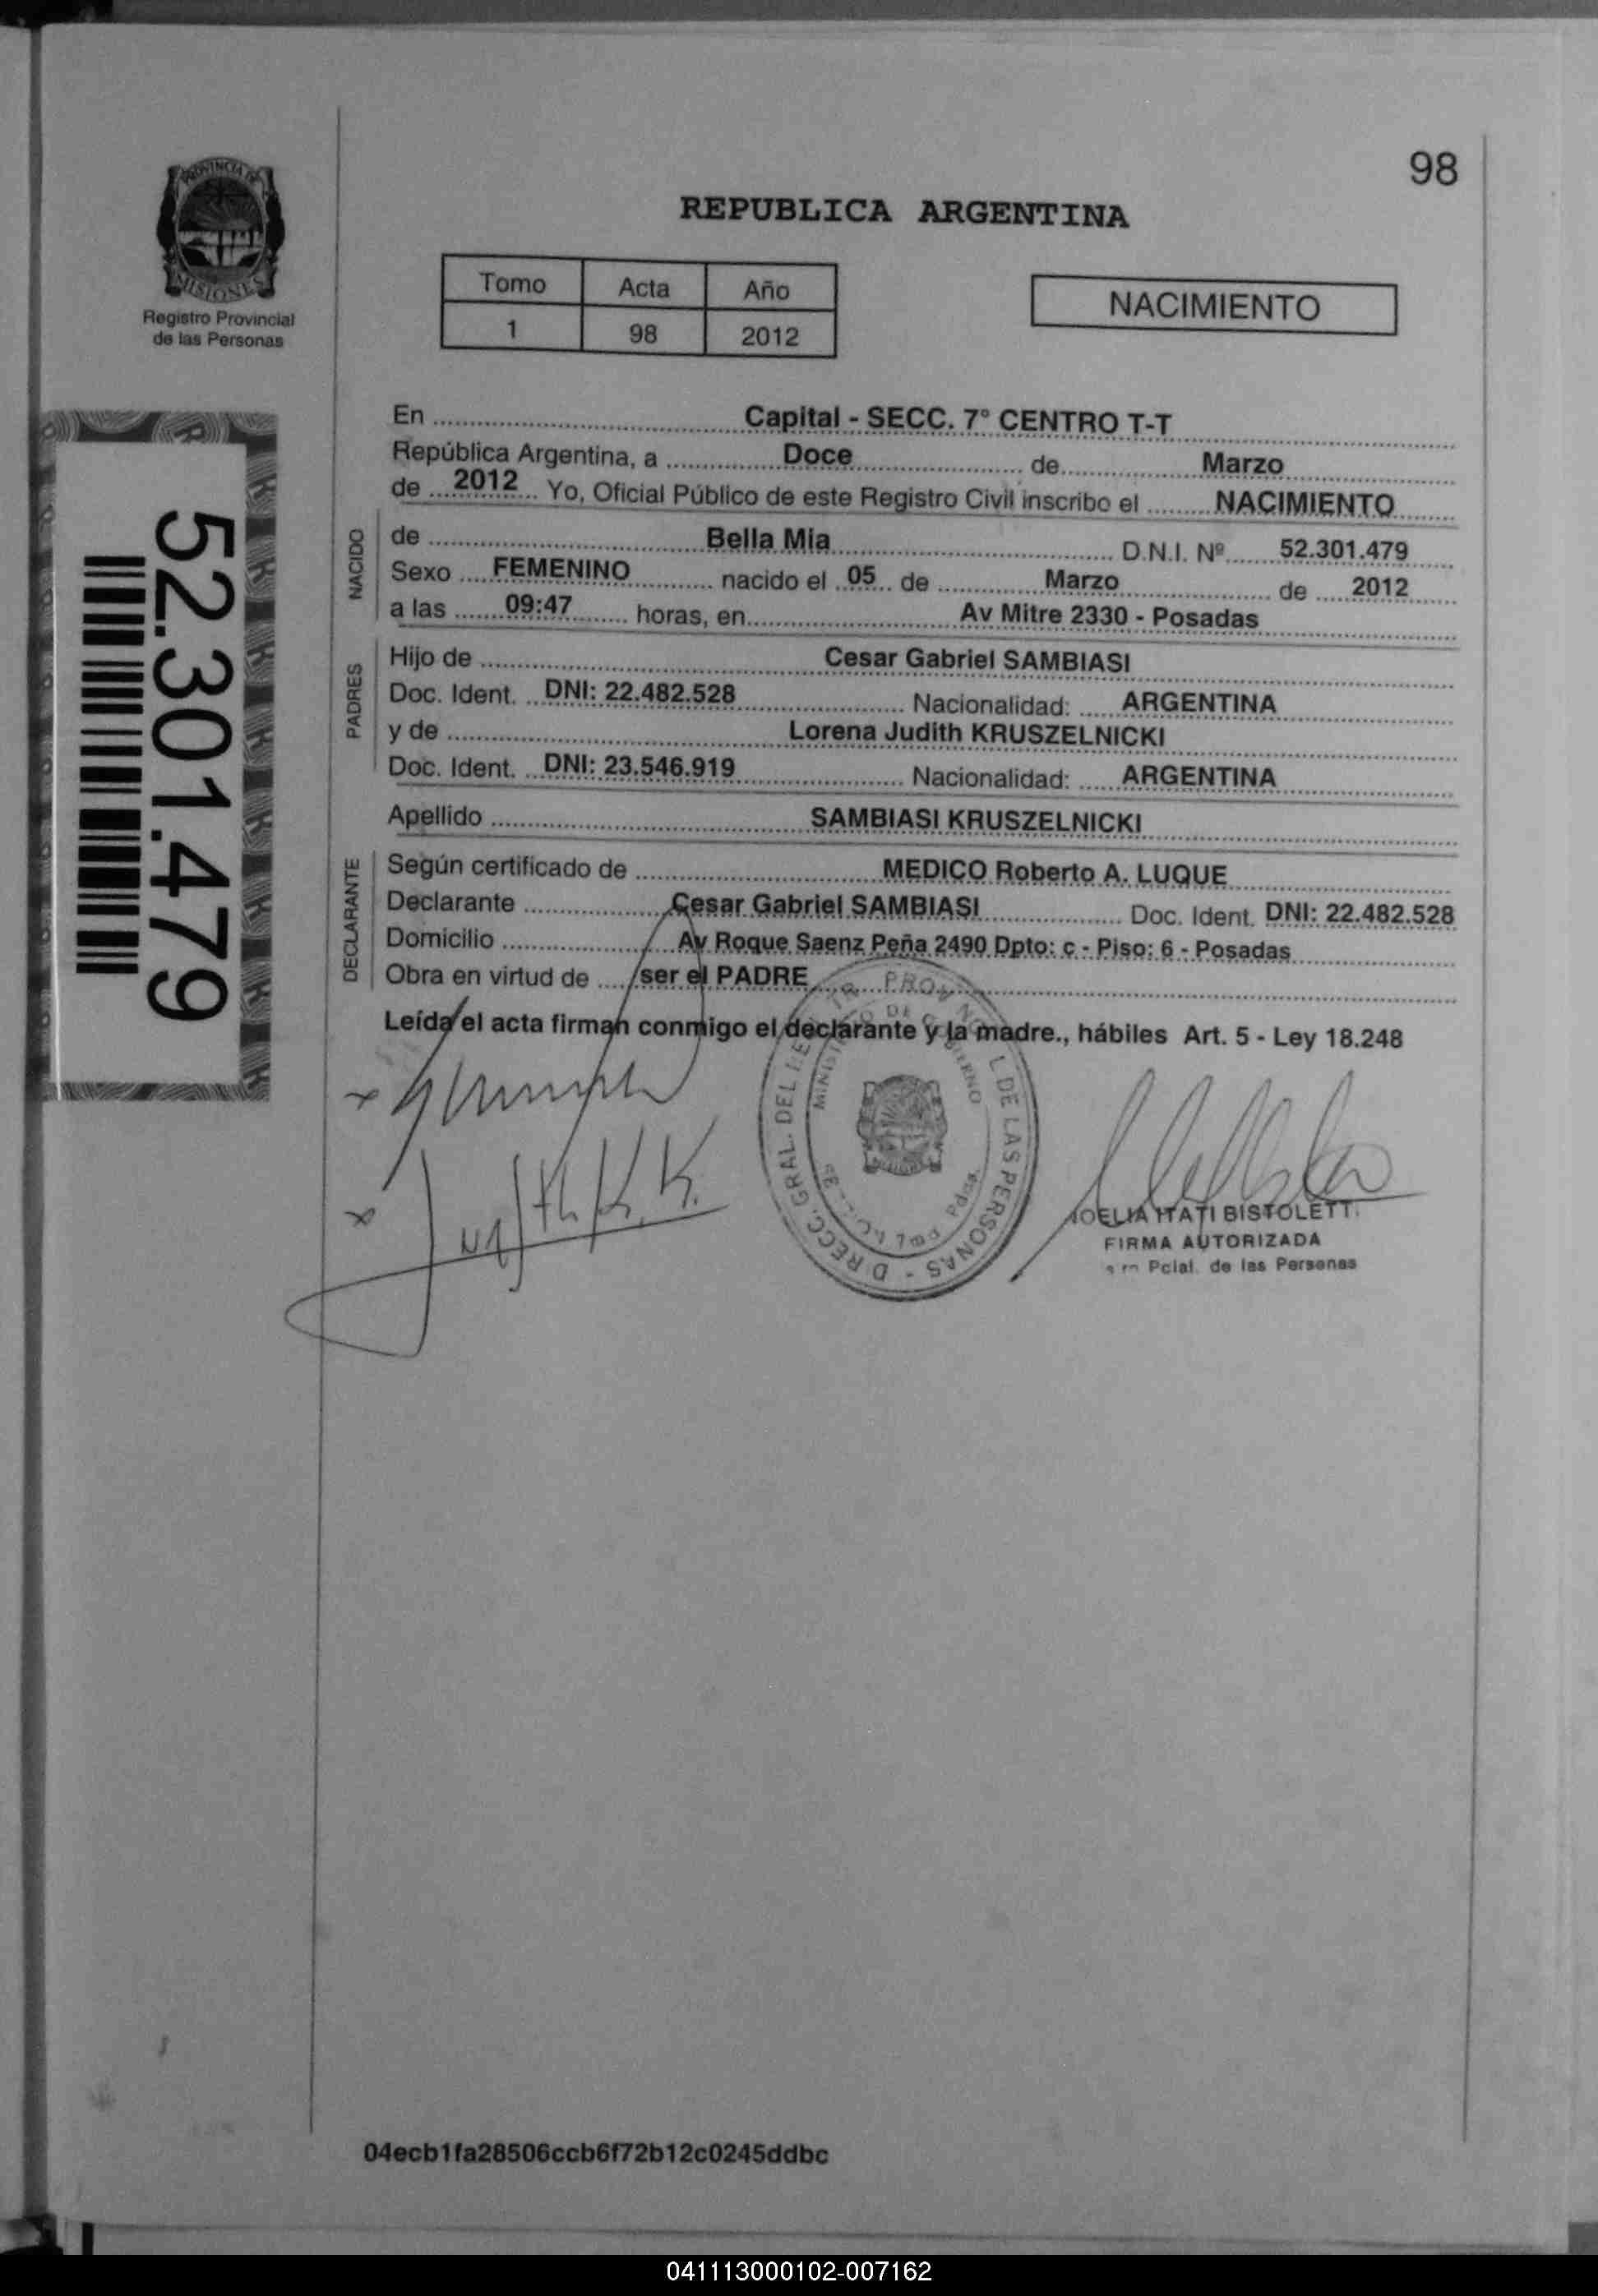 98
REPUBLICA ARGENTINA
PROVINCIA DE
MISIONES
Registro Provincial
de las Personas
Tomo Acta Año
1 98 2012
NACIMIENTO
52.301.479
En Capital - SECC. 7° CENTRO T-T
República Argentina, a Doce de Marzo
de 2012 Yo, Oficial Público de este Registro Civil inscribo el NACIMIENTO
NACIDO
de Bella Mia D.N.I. Nº 52.301.479
Sexo FEMENINO nacido el 05 de Marzo de 2012
a las 09:47 horas, en Av Mitre 2330 - Posadas
PADRES
Hijo de Cesar Gabriel SAMBIASI
Doc. Ident. DNI: 22.482.528 Nacionalidad: ARGENTINA
y de Lorena Judith KRUSZELNICKI
Doc. Ident. DNI: 23.546.919 Nacionalidad: ARGENTINA
Apellido SAMBIASI KRUSZELNICKI
DECLARANTE
Según certificado de MEDICO Roberto A. LUQUE
Declarante Cesar Gabriel SAMBIASI Doc. Ident. DNI: 22.482.528
Domicilio Av Roque Saenz Peña 2490 Dpto: c - Piso: 6 - Posadas
Obra en virtud de ser el PADRE
Leída el acta firman conmigo el declarante y la madre., hábiles Art. 5 - Ley 18.248
DE LAS PERSONAS
ITATI BISTOLETT
FIRMA AUTORIZADA
Pcial. de las Personas
04ecb1fa28506ccb6f72b12c0245ddbc
041113000102-007162